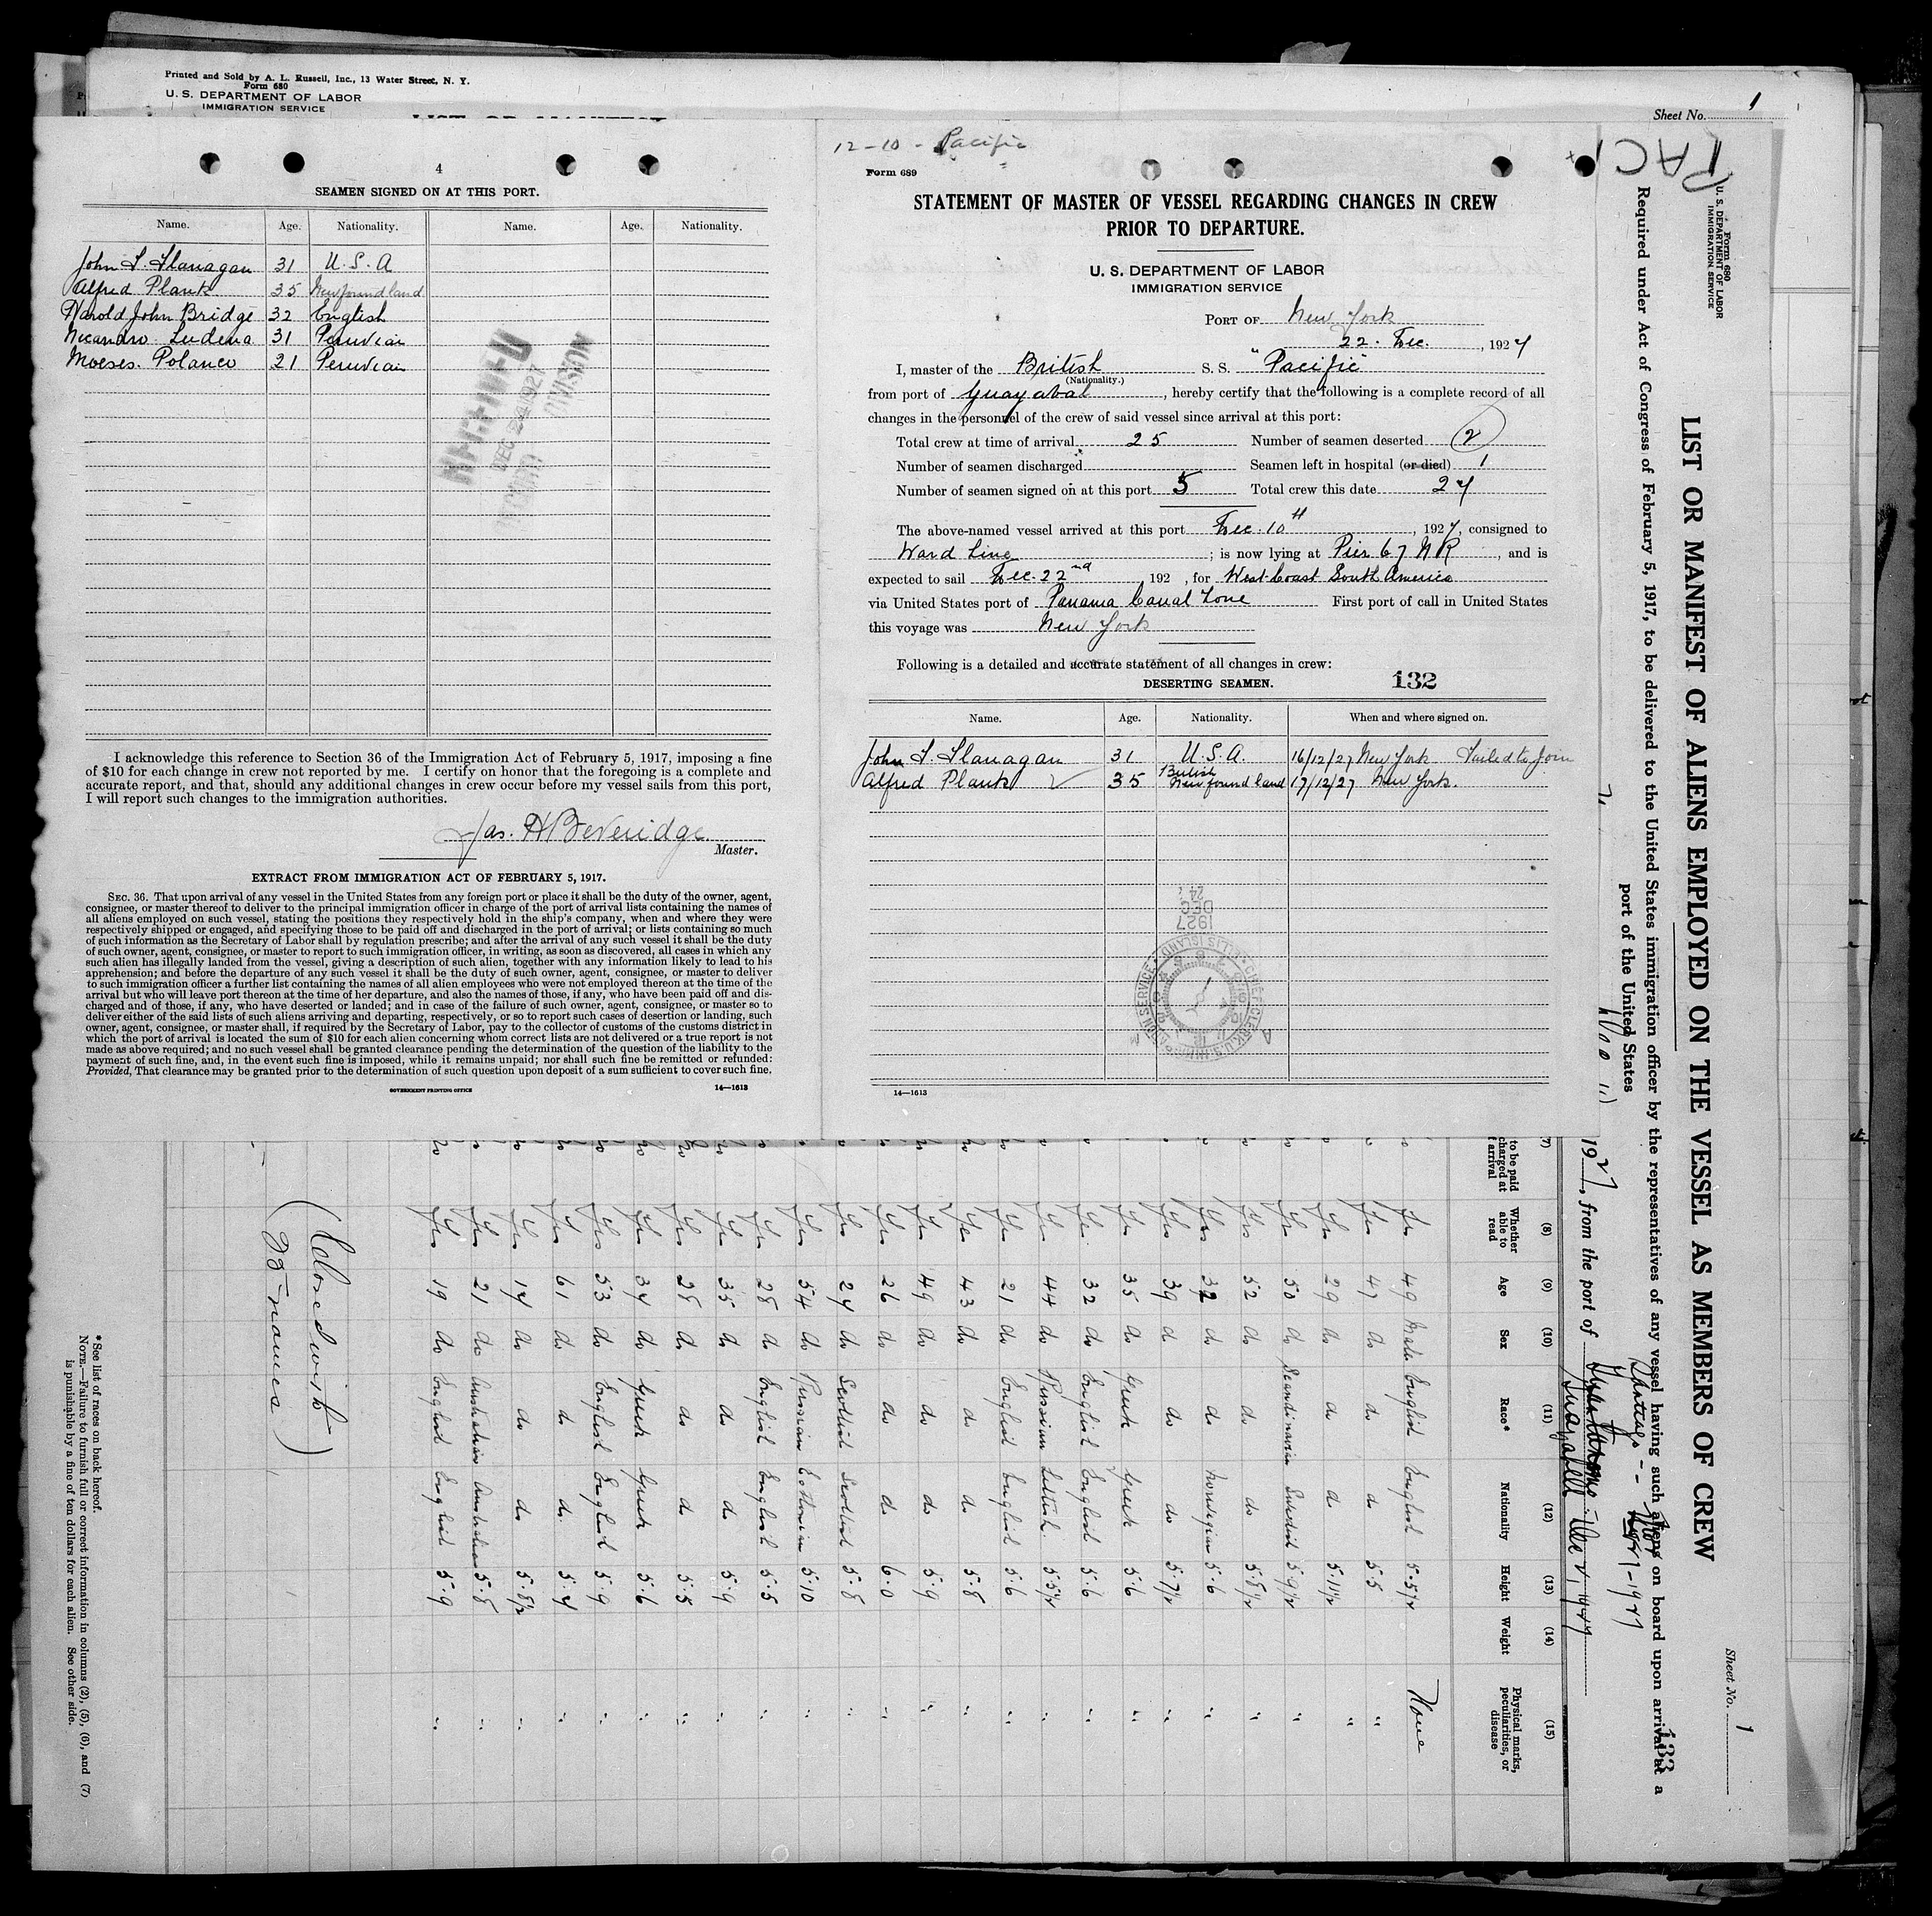 Printed and Sold by A. L. Russell, Inc., 13 Water Street, N. Y.
Form 680
U. S. DEPARTMENT OF LABOR
IMMIGRATION SERVICE
Sheet No. 1
4
SEAMEN SIGNED ON AT THIS PORT.
Name. Age. Nationality. Name. Age. Nationality.
John L. Flanagan 31 U.S.A
Alfred Plank 35 Newfoundland
Harold John Bridge 32 English
Nicandro Ludena 31 Peruvian
Moeses. Polanco 21 Peruvian
DEC 24 1927
DIVISION
I acknowledge this reference to Section 36 of the Immigration Act of February 5, 1917, imposing a fine
of $10 for each change in crew not reported by me. I certify on honor that the foregoing is a complete and
accurate report, and that, should any additional changes in crew occur before my vessel sails from this port,
I will report such changes to the immigration authorities.
Jas. H Beveridge.
Master.
EXTRACT FROM IMMIGRATION ACT OF FEBRUARY 5, 1917.
SEC. 36. That upon arrival of any vessel in the United States from any foreign port or place it shall be the duty of the owner, agent,
consignee, or master thereof to deliver to the principal immigration officer in charge of the port of arrival lists containing the names of
all aliens employed on such vessel, stating the positions they respectively hold in the ship's company, when and where they were
respectively shipped or engaged, and specifying those to be paid off and discharged in the port of arrival; or lists containing so much
of such information as the Secretary of Labor shall by regulation prescribe; and after the arrival of any such vessel it shall be the duty
of such owner, agent, consignee, or master to report to such immigration officer, in writing, as soon as discovered, all cases in which any
such alien has illegally landed from the vessel, giving a description of such alien, together with any information likely to lead to his
apprehension; and before the departure of any such vessel it shall be the duty of such owner, agent, consignee, or master to deliver
to such immigration officer a further list containing the names of all alien employees who were not employed thereon at the time of the
arrival but who will leave port thereon at the time of her departure, and also the names of those, if any, who have been paid off and dis-
charged and of those, if any, who have deserted or landed; and in case of the failure of such owner, agent, consignee, or master so to
deliver either of the said lists of such aliens arriving and departing, respectively, or so to report such cases of desertion or landing, such
owner, agent, consignee, or master shall, if required by the Secretary of Labor, pay to the collector of customs of the customs district in
which the port of arrival is located the sum of $10 for each alien concerning whom correct lists are not delivered or a true report is not
made as above required; and no such vessel shall be granted clearance pending the determination of the question of the liability to the
payment of such fine, and, in the event such fine is imposed, while it remains unpaid; nor shall such fine be remitted or refunded:
Provided, That clearance may be granted prior to the determination of such question upon deposit of a sum sufficient to cover such fine.
GOVERNMENT PRINTING OFFICE 14—1613
12-10 - Pacific
Form 689
STATEMENT OF MASTER OF VESSEL REGARDING CHANGES IN CREW
PRIOR TO DEPARTURE.
U. S. DEPARTMENT OF LABOR
IMMIGRATION SERVICE
PORT OF New York
22. Dec., 1927
I, master of the British S. S. "Pacific"
(Nationality.)
from port of Guayabal, hereby certify that the following is a complete record of all
changes in the personnel of the crew of said vessel since arrival at this port:
Total crew at time of arrival 25 Number of seamen deserted 2
Number of seamen discharged Seamen left in hospital (or died) 1
Number of seamen signed on at this port 5 Total crew this date 27
The above-named vessel arrived at this port Dec. 10th, 1927, consigned to
Ward Line; is now lying at Pier 67 N R, and is
expected to sail Dec. 22nd, 192 , for West Coast South America
via United States port of Panama Canal Zone First port of call in United States
this voyage was New York
Following is a detailed and accurate statement of all changes in crew:
DESERTING SEAMEN. 132
Name. Age. Nationality. When and where signed on.
John L. Flanagan 31 U.S.A. 16/12/27 New York Failed to Join
Alfred Plank 35 British Newfoundland 17/12/27 New York.
1927 DEC 24
14—1613
PACI
Form 680
U. S. DEPARTMENT OF LABOR
IMMIGRATION SERVICE
Sheet No. 1
LIST OR MANIFEST OF ALIENS EMPLOYED ON THE VESSEL AS MEMBERS OF CREW
133
Required under Act of Congress of February 5, 1917, to be delivered to the United States immigration officer by the representatives of any vessel having such aliens on board upon arrival at a
port of the United States
Santiago
1927, from the port of
(7) (8) (9) (10) (11) (12) (13) (14) (15)
to be paid charged at arrival Whether able to read Age Sex Race* Nationality Height Weight Physical marks, peculiarities, or disease
Yes 49 Male English English 5.5½ None
Yes 47 do do do 5.5 "
Yes 29 do do do 5.11½ "
Yes 50 do Scandinavian Swedish 5.9½ "
Yes 52 do do do 5.8½ "
Yes 32 do do Norwegian 5.6 "
Yes 39 do do do 5.7½ "
Yes 35 do Greek Greek 5.6 "
Yes 32 do English English 5.6 "
Yes 44 do Russian Lettish 5.5½ "
Yes 21 do English English 5.6 "
Yes 43 do do do 5.8 "
Yes 49 do do do 5.9 "
Yes 26 do do do 6.0 "
Yes 24 do Scottish Scottish 5.8 "
Yes 54 do Russian Esthonian 5.10 "
Yes 28 do English English 5.5 "
Yes 35 do do do 5.9 "
Yes 28 do do do 5.5 "
Yes 34 do Greek Greek 5.6 "
Yes 53 do English English 5.9 "
Yes 61 do do do 5.4 "
Yes 14 do do do 5.8½ "
Yes 21 do Australian Australian 5.8 "
Yes 19 do English English 5.9 "
(Closed with
25 names)
*See list of races on back hereof.
NOTE.—Failure to furnish full or correct information in columns (2), (5), (6), and (7)
is punishable by a fine of ten dollars for each alien. See other side.